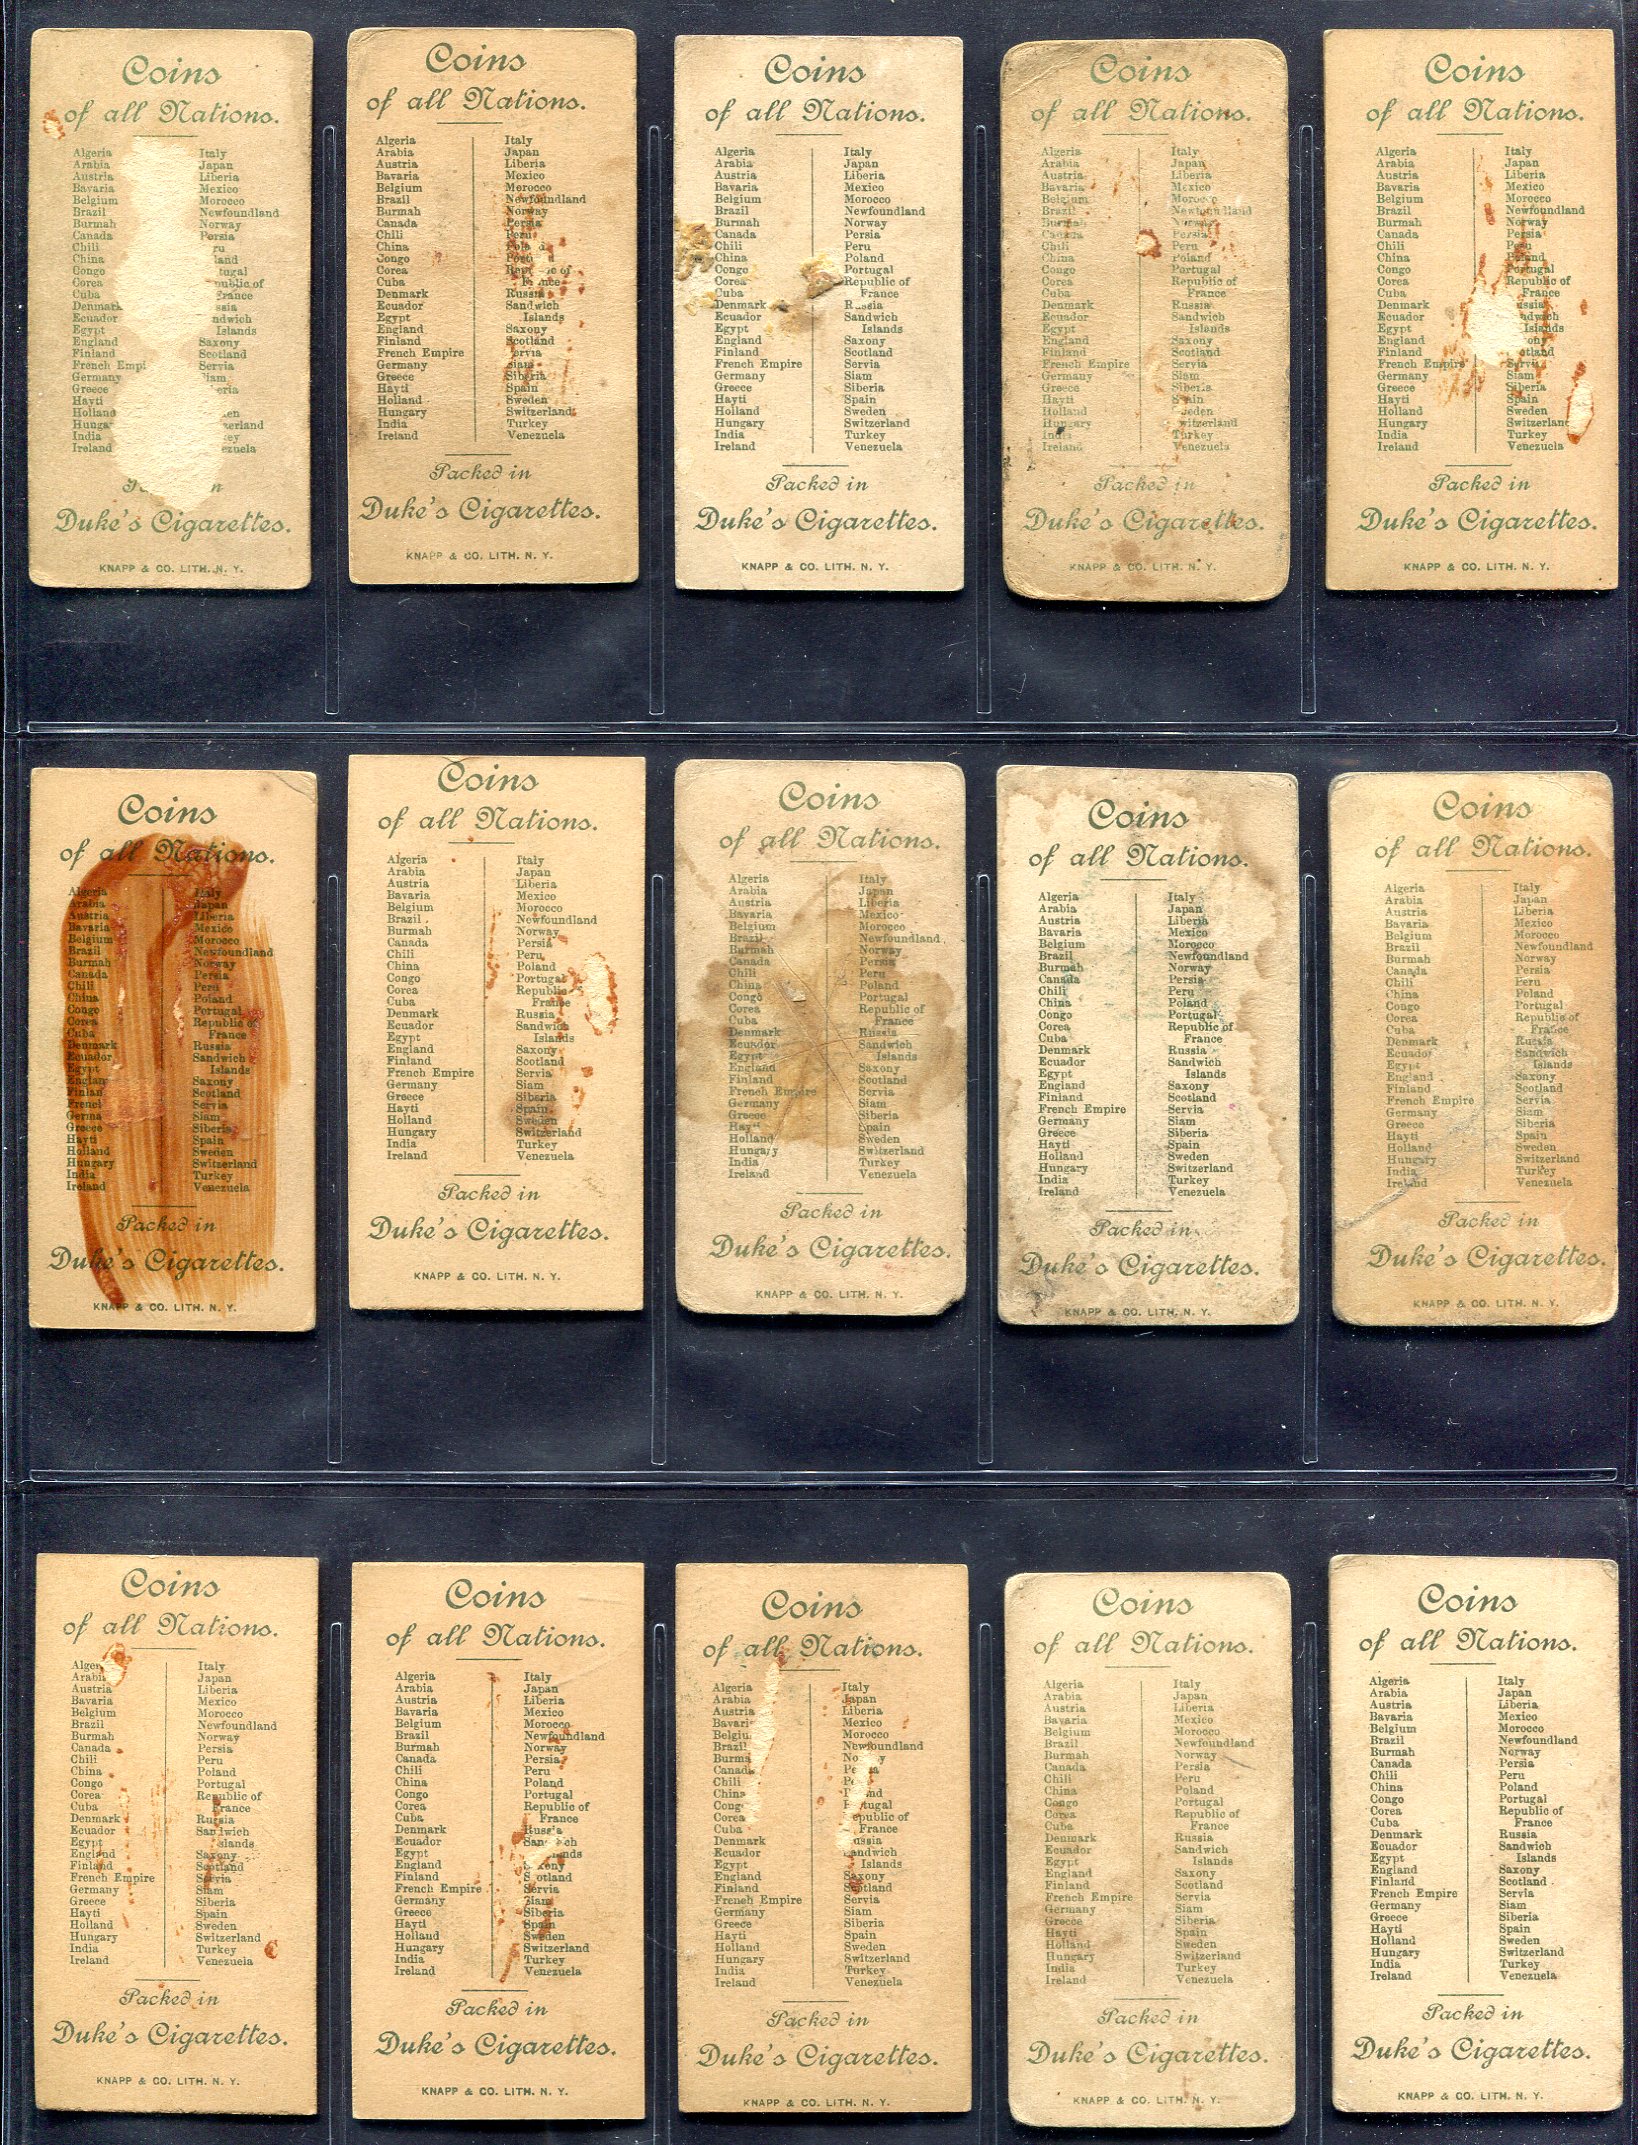 Coins
of all Nations.
Algeria
Arabia
Austria
Bavaria
Belgium
Brazil
Burmah
Canada
Chili
China
Congo
Corea
Cuba
Denmark
Ecuador
Egypt
England
Finland
French Empi
Germany
Greece
Hayti
Holland
Hunga
India
Ireland
Italy
Japan
Liberia
Mexico
Morocco
Newfoundland
Norway
Persia
ru
land
tugal
public of
France
ssia
ndwich
Islands
Saxony
Scotland
Servia
Siam
eria
den
zerland
key
ezuela
Duke's Cigarettes.
KNAPP & CO. LITH. N. Y.
Coins
of all Nations.
Algeria
Arabia
Austria
Bavaria
Belgium
Brazil
Burmah
Canada
Chili
China
Congo
Corea
Cuba
Denmark
Ecuador
Egypt
England
Finland
French Empire
Germany
Greece
Hayti
Holland
Hungary
India
Ireland
Italy
Japan
Liberia
Mexico
Morocco
Newfoundland
Norway
Persia
Peru
Russia
Sandwich
Islands
Saxony
Scotland
Servia
Siam
Siberia
Spain
Sweden
Switzerland
Turkey
Venezuela
Packed in
Duke's Cigarettes.
KNAPP & CO. LITH. N. Y.
Coins
of all Nations.
Algeria
Arabia
Austria
Bavaria
Belgium
Brazil
Burmah
Canada
Chili
China
Congo
Corea
Cuba
Denmark
Ecuador
Egypt
England
Finland
French Empire
Germany
Greece
Hayti
Holland
Hungary
India
Ireland
Italy
Japan
Liberia
Mexico
Morocco
Newfoundland
Norway
Persia
Peru
Poland
Portugal
Republic of
France
Russia
Sandwich
Islands
Saxony
Scotland
Servia
Siam
Siberia
Spain
Sweden
Switzerland
Turkey
Venezuela
Packed in
Duke's Cigarettes.
KNAPP & CO. LITH. N. Y.
Coins
of all Nations.
Algeria
Arabia
Austria
Bavaria
Belgium
Brazil
Burmah
Canada
Chili
China
Congo
Corea
Cuba
Denmark
Ecuador
Egypt
England
Finland
French Empire
Germany
Greece
Hayti
Holland
Hungary
India
Ireland
Italy
Japan
Liberia
Mexico
Morocco
Newfoundland
Norway
Persia
Peru
Poland
Portugal
Republic of
France
Russia
Sandwich
Islands
Saxony
Scotland
Servia
Siam
Siberia
Spain
Sweden
Switzerland
Turkey
Venezuela
Packed in
Duke's Cigarettes.
KNAPP & CO. LITH. N. Y.
Coins
of all Nations.
Algeria
Arabia
Austria
Bavaria
Belgium
Brazil
Burmah
Canada
Chili
China
Congo
Corea
Cuba
Denmark
Ecuador
Egypt
England
Finland
French Empire
Germany
Greece
Hayti
Holland
Hungary
India
Ireland
Italy
Japan
Liberia
Mexico
Morocco
Newfoundland
Norway
Persia
Peru
Poland
Portugal
Republic of
France
ussia
ndwich
Islands
ony
otland
Servia
Siam
Siberia
Spain
Sweden
Switzerland
Turkey
Venezuela
Packed in
Duke's Cigarettes.
KNAPP & CO. LITH. N. Y.
Coins
of all Nations.
Algeria
Arabia
Austria
Bavaria
Belgium
Brazil
Burmah
Canada
Chili
China
Congo
Corea
Cuba
Denmark
Ecuador
Egypt
Englan
Finlan
Frenc
Germa
Greece
Hayti
Holland
Hungary
India
Ireland
Italy
Japan
Liberia
Mexico
Morocco
Newfoundland
Norway
Persia
Peru
Poland
Portugal
Republic of
France
Russia
Sandwich
Islands
Saxony
Scotland
Servia
Siam
Siberia
Spain
Sweden
Switzerland
Turkey
Venezuela
Packed in
Duke's Cigarettes.
KNAPP & CO. LITH. N. Y.
Coins
of all Nations.
Algeria
Arabia
Austria
Bavaria
Belgium
Brazil
Burmah
Canada
Chili
China
Congo
Corea
Cuba
Denmark
Ecuador
Egypt
England
Finland
French Empire
Germany
Greece
Hayti
Holland
Hungary
India
Ireland
Italy
Japan
Liberia
Mexico
Morocco
Newfoundland
Norway
Persia
Peru
Poland
Portugal
Republic
France
Russia
Sandwich
Islands
Saxony
Scotland
Servia
Siam
Siberia
Spain
Sweden
Switzerland
Turkey
Venezuela
Packed in
Duke's Cigarettes.
KNAPP & CO. LITH. N. Y.
Coins
of all Nations.
Algeria
Arabia
Austria
Bavaria
Belgium
Brazil
Burmah
Canada
Chili
China
Congo
Corea
Cuba
Denmark
Ecuador
Egypt
England
Finland
French Empire
Germany
Greece
Hay
Holland
Hungary
India
Ireland
Italy
Japan
Liberia
Mexico
Morocco
Newfoundland
Norway
Persia
Peru
Poland
Portugal
Republic of
France
Russia
Sandwich
Islands
Saxony
Scotland
Servia
Siam
Siberia
Spain
Sweden
Switzerland
Turkey
Venezuela
Packed in
Duke's Cigarettes.
KNAPP & CO. LITH. N. Y.
Coins
of all Nations.
Algeria
Arabia
Austria
Bavaria
Belgium
Brazil
Burmah
Canada
Chili
China
Congo
Corea
Cuba
Denmark
Ecuador
Egypt
England
Finland
French Empire
Germany
Greece
Hayti
Holland
Hungary
India
Ireland
Italy
Japan
Liberia
Mexico
Morocco
Newfoundland
Norway
Persia
Peru
Poland
Portugal
Republic of
France
Russia
Sandwich
Islands
Saxony
Scotland
Servia
Siam
Siberia
Spain
Sweden
Switzerland
Turkey
Venezuela
Packed in
Duke's Cigarettes.
KNAPP & CO. LITH. N. Y.
Coins
of all Nations.
Algeria
Arabia
Austria
Bavaria
Belgium
Brazil
Burmah
Canada
Chili
China
Congo
Corea
Cuba
Denmark
Ecuador
Egypt
England
Finland
French Empire
Germany
Greece
Hayti
Holland
Hungary
India
Ireland
Italy
Japan
Liberia
Mexico
Morocco
Newfoundland
Norway
Persia
Peru
Poland
Portugal
Republic of
France
Russia
Sandwich
Islands
Saxony
Scotland
Servia
Siam
Siberia
Spain
Sweden
Switzerland
Turkey
Venezuela
Packed in
Duke's Cigarettes.
KNAPP & CO. LITH. N. Y.
Coins
of all Nations.
Alger
Arabi
Austria
Bavaria
Belgium
Brazil
Burmah
Canada
Chili
China
Congo
Corea
Cuba
Denmark
Ecuador
Egypt
England
Finland
French Empire
Germany
Greece
Hayti
Holland
Hungary
India
Ireland
Italy
Japan
Liberia
Mexico
Morocco
Newfoundland
Norway
Persia
Peru
Poland
Portugal
Republic of
France
Russia
Sandwich
slands
Saxony
Scotland
Servia
Siam
Siberia
Spain
Sweden
Switzerland
Turkey
Venezuela
Packed in
Duke's Cigarettes.
KNAPP & CO. LITH. N. Y.
Coins
of all Nations.
Algeria
Arabia
Austria
Bavaria
Belgium
Brazil
Burmah
Canada
Chili
China
Congo
Corea
Cuba
Denmark
Ecuador
Egypt
England
Finland
French Empire
Germany
Greece
Hayti
Holland
Hungary
India
Ireland
Italy
Japan
Liberia
Mexico
Morocco
Newfoundland
Norway
Persia
Peru
Poland
Portugal
Republic of
France
Russia
nds
Servia
Siam
Siberia
Spain
Sweden
Switzerland
Turkey
Venezuela
Packed in
Duke's Cigarettes.
KNAPP & CO. LITH. N. Y.
Coins
of all Nations.
Algeria
Arabia
Austria
Bavari
Belgiu
Brazil
Burma
Canad
Chili
China
Cong
Corea
Cuba
Denmark
Ecuador
Egypt
England
Finland
French Empire
Germany
Greece
Hayti
Holland
Hungary
India
Ireland
Italy
Japan
Liberia
Mexico
Morocco
Newfoundland
epublic of
France
ussia
andwich
Islands
Saxony
Scotland
Servia
Siam
Siberia
Spain
Sweden
Switzerland
Turkey
Venezuela
Packed in
Duke's Cigarettes.
KNAPP & CO. LITH. N. Y.
Coins
of all Nations.
Algeria
Arabia
Austria
Bavaria
Belgium
Brazil
Burmah
Canada
Chili
China
Congo
Corea
Cuba
Denmark
Ecuador
Egypt
England
Finland
French Empire
Germany
Greece
Hayti
Holland
Hungary
India
Ireland
Italy
Japan
Liberia
Mexico
Morocco
Newfoundland
Norway
Persia
Peru
Poland
Portugal
Republic of
France
Russia
Sandwich
Islands
Saxony
Scotland
Servia
Siam
Siberia
Spain
Sweden
Switzerland
Turkey
Venezuela
Packed in
Duke's Cigarettes.
KNAPP & CO. LITH. N. Y.
Coins
of all Nations.
Algeria
Arabia
Austria
Bavaria
Belgium
Brazil
Burmah
Canada
Chili
China
Congo
Corea
Cuba
Denmark
Ecuador
Egypt
England
Finland
French Empire
Germany
Greece
Hayti
Holland
Hungary
India
Ireland
Italy
Japan
Liberia
Mexico
Morocco
Newfoundland
Norway
Persia
Peru
Poland
Portugal
Republic of
France
Russia
Sandwich
Islands
Saxony
Scotland
Servia
Siam
Siberia
Spain
Sweden
Switzerland
Turkey
Venezuela
Packed in
Duke's Cigarettes.
KNAPP & CO. LITH. N. Y.